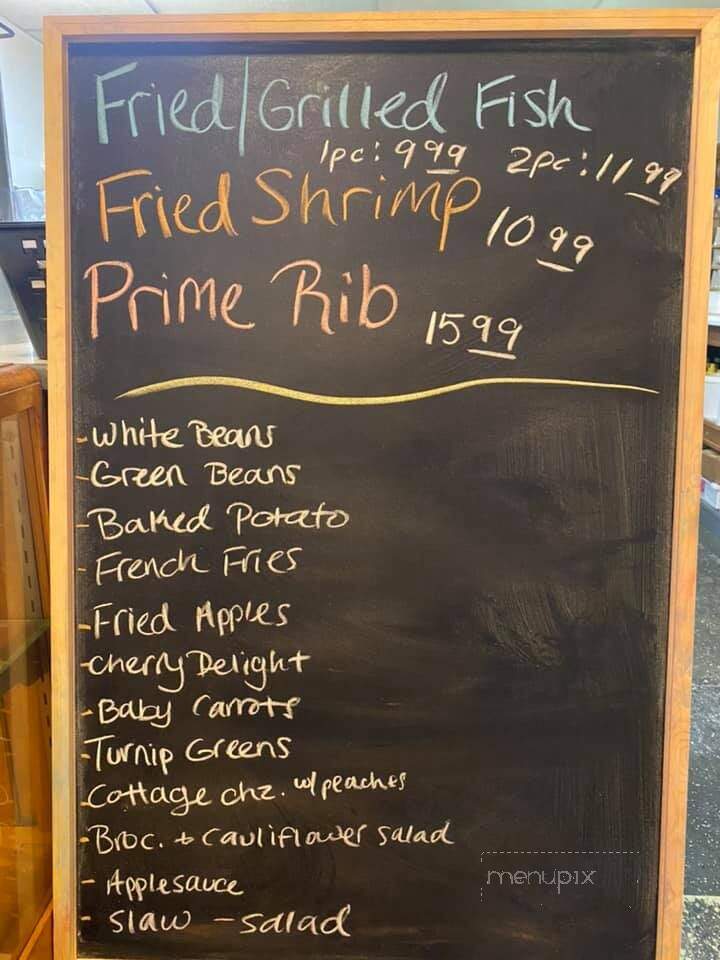 Fried/Grilled Fish
1pc: 9 99 2pc: 11 99
Fried Shrimp 10 99
Prime Rib 15 99
- White Beans
- Green Beans
- Baked Potato
- French Fries
- Fried Apples
- Cherry Delight
- Baby Carrots
- Turnip Greens
- Cottage chz. w/ peaches
- Broc. + Cauliflower Salad
- Applesauce
- Slaw - Salad
menupix